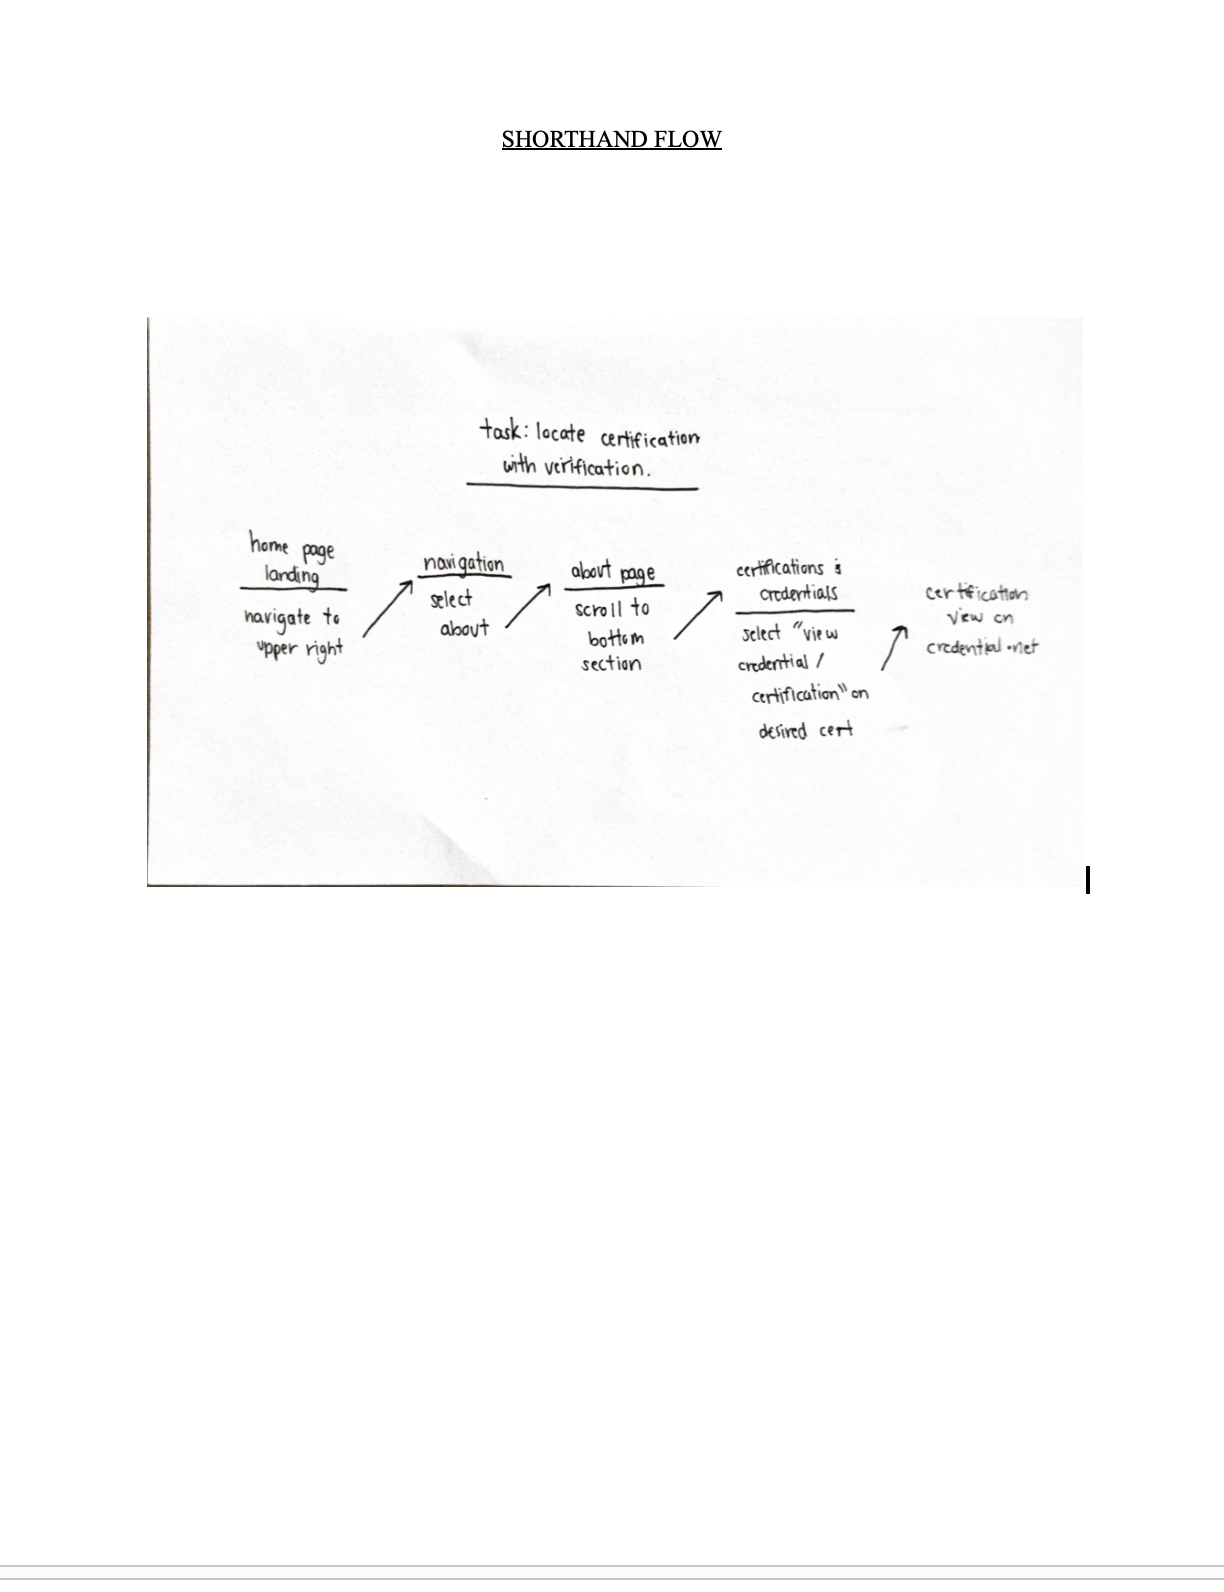 SHORTHAND FLOW
task: locate certification
with verification.
home page
landing
navigate to
upper right
navigation
select
about
about page
scroll to
bottom
section
certifications &
credentials
select "view
credential /
certification" on
desired cert
certification
view on
credential.net